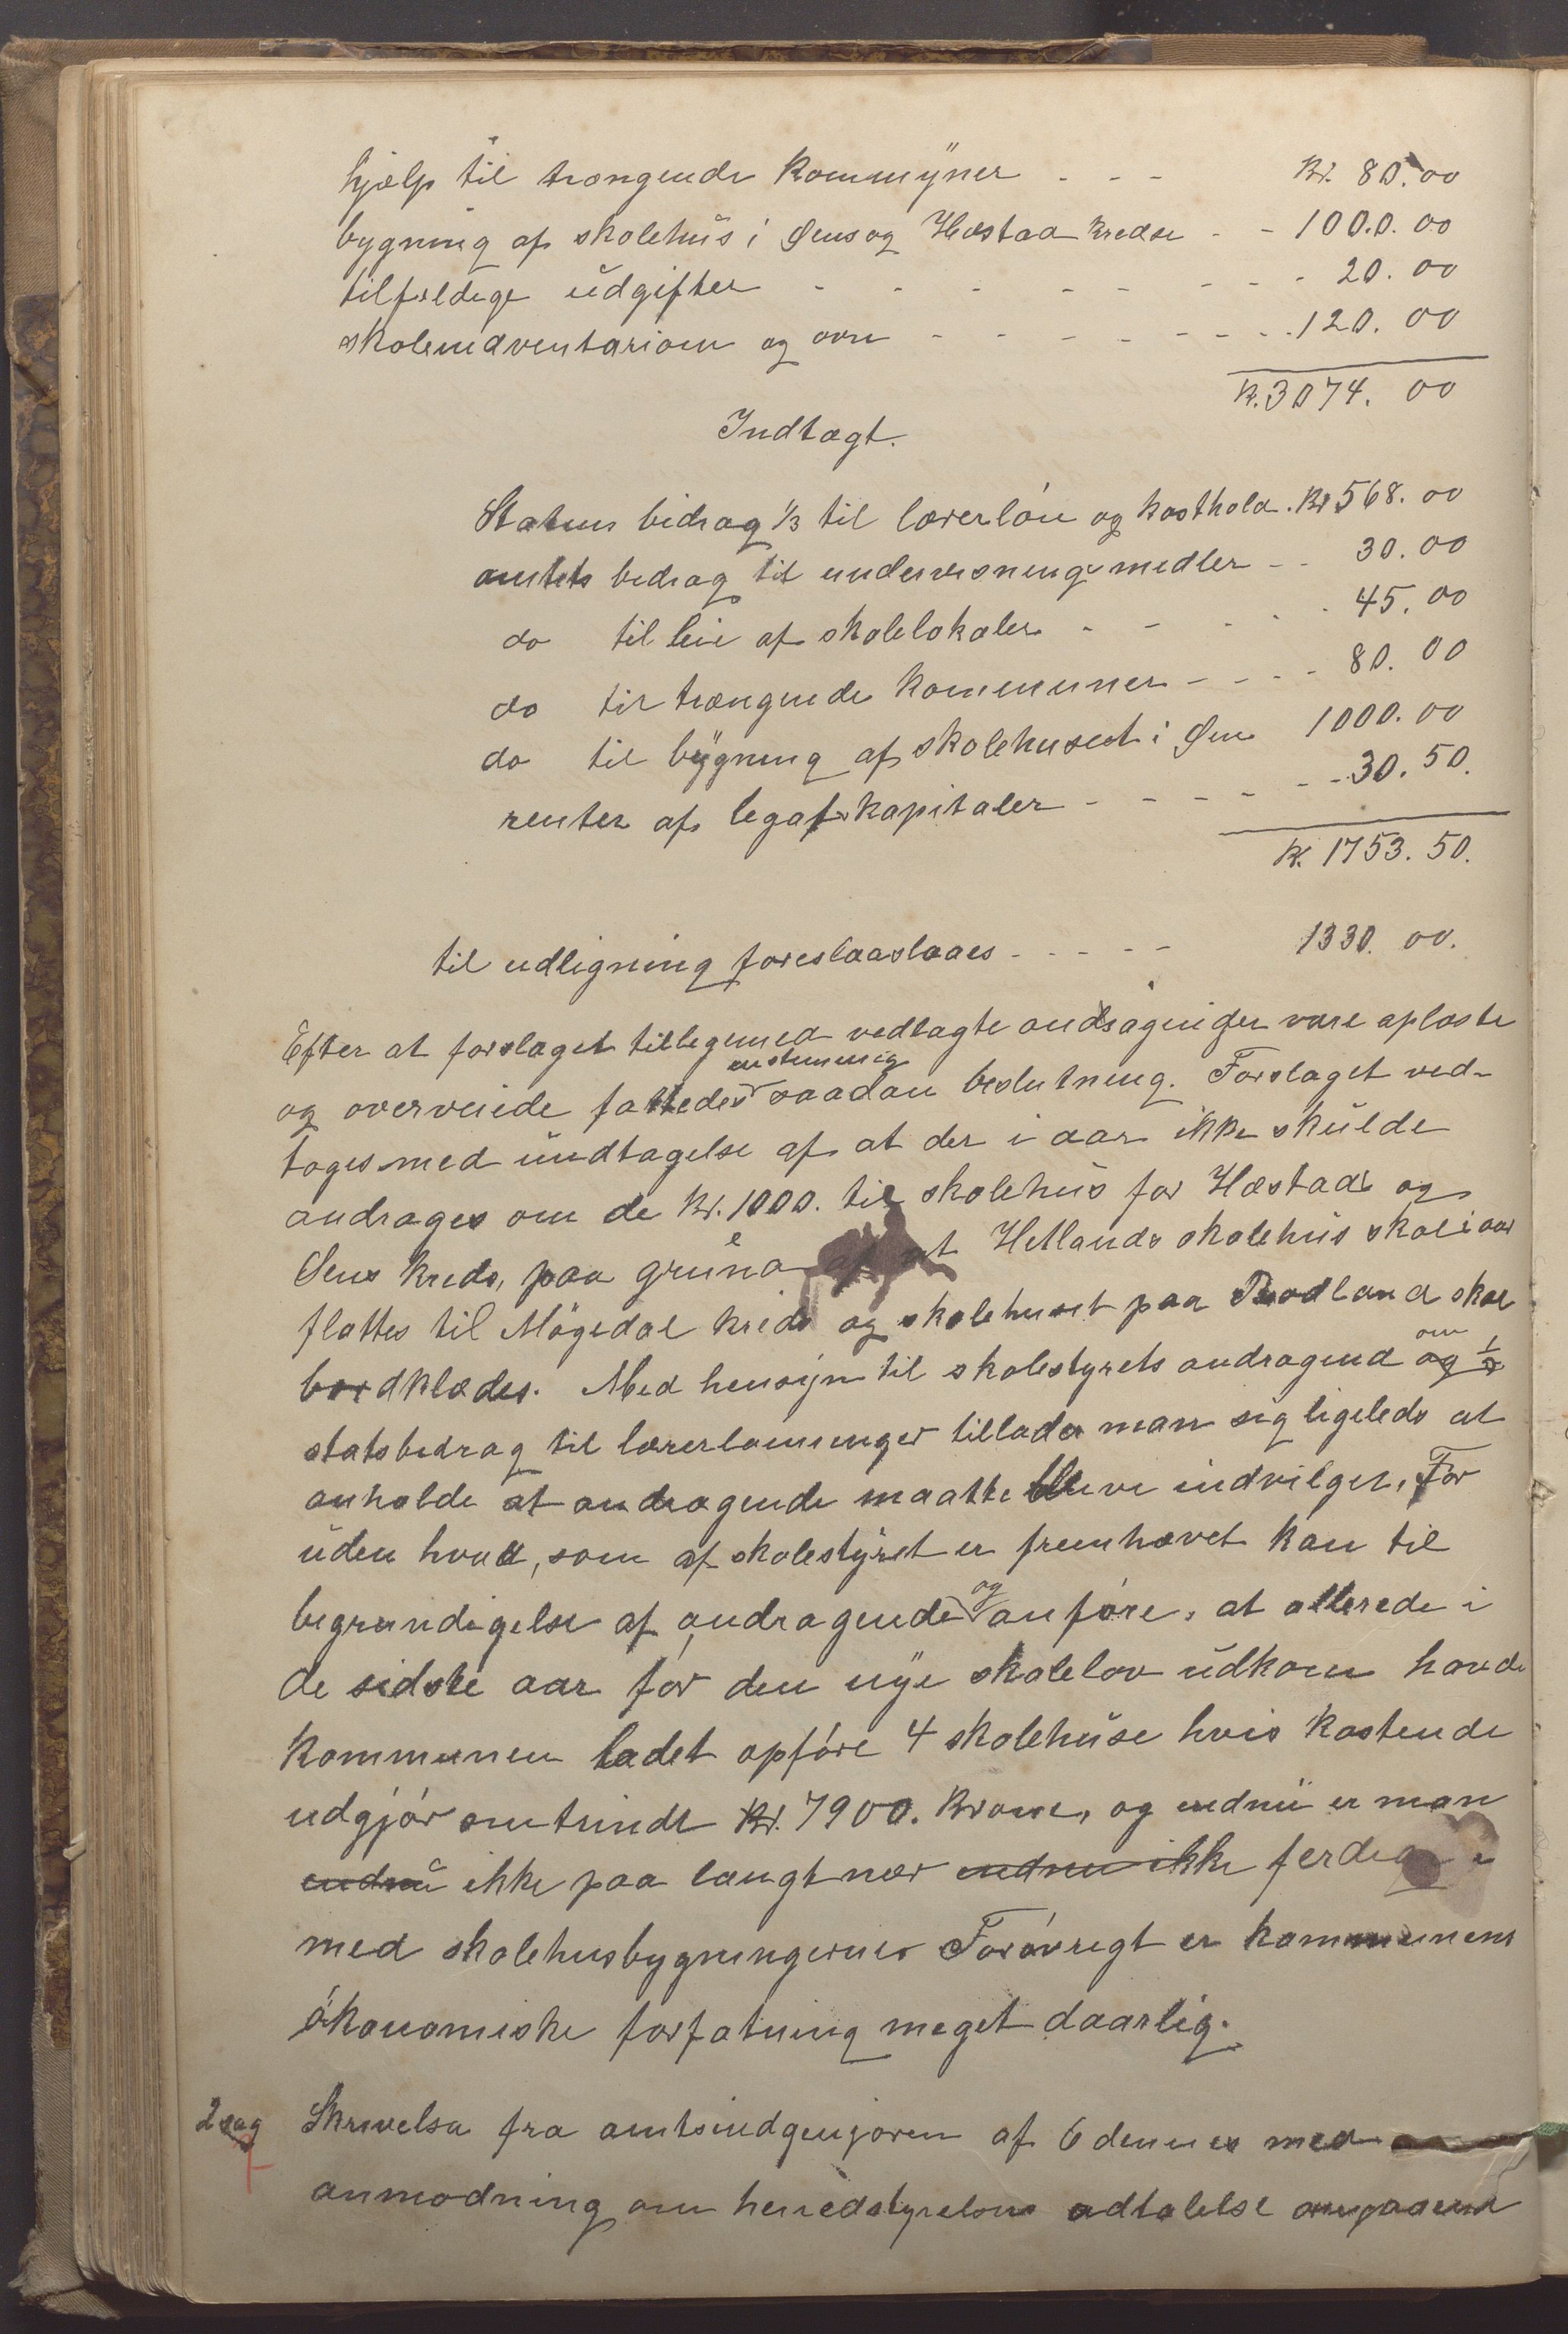 hjælp til trængende kommyner - - - Kr. 80.00
bygning af skolehus i Øens og Hæstad kredse - - 1000.00
tilfældige udgifter - - - - - - - - 20.00
skoleindventariom og ovn - - - - - - - 120.00
Kr. 3074.00
Indtægt.
Statens bidrag 1/3 til lærerlön og kosthold. Kr 568.00
amtets bidrag til undervisningsmidler - - 30.00
do til leie af skolelokaler - - - - - 45.00
do til trængende kommuner - - - - 80.00
do til bygning af skolehuset i Øen 1000.00
renter af legatskapitaler - - - - - - 30.50.
Kr. 1753.50.
til udligning foreslaaslaaes - - - - - 1330.00.
Efter at forslaget tilligemed vedlagte andragender vare oplæste
og overveiede fattedes enstemmig saadan beslutning. Forslaget ved-
toges med undtagelse af at der i aar ikke skulde
andrages om de Kr. 1000. til skolehus for Hæstad og
Øens kreds, paa grund af at Hetlands skolehus skal i aar
flöttes til Mögedal kreds og skolehuset paa Rodland skal
bordklædes. Med hensyn til skolestyrets andragend og om 1/2
statsbidrag til lærerlønninger tillader man sig ligeleds at
anholde at andragende maatte blive indvilget, For
uden hvad, som af skolestyret er fremhævet kan til
begrundigelse af andragende og anföre, at allerede i
de sidste aar för den nye skolelov udkom havde
kommunen ladet opföre 4 skolehuse hvis kostende
udgjör omtrindt Kr. 7900. Krone, og endnu er man
endnu ikke paa langt nær endnu ikke ferdig
med skolehusbygningerne. Foróvrigt er kommunens
ökonomiske forfatning meget daarlig.
2 sag Skrivelse fra amtsindgenjören af 6 dennes med
anmodning om herredstyrelsens udtalelse